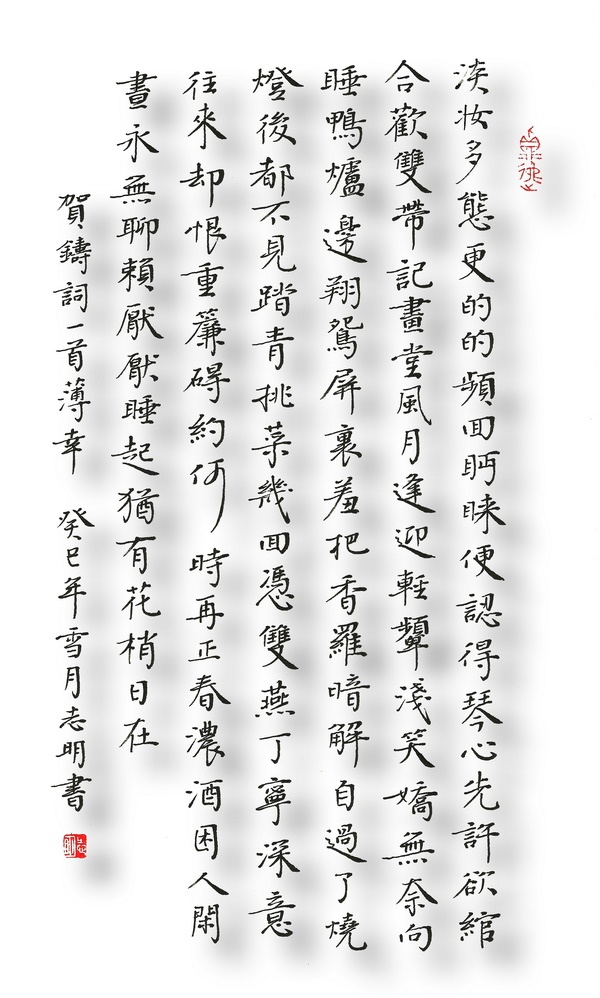 淡妆多態更的的頻回眄睞便認得琴心先許欲綰
合歡雙帶記畫堂風月逢迎輕顰淺笑嬌無奈向
睡鴨爐邊翔鴛屏裏羞把香羅暗解自過了燒
燈後都不見踏青挑菜幾回憑雙燕丁寧深意
往來却恨重簾碍約何時再正春濃酒困人閑
晝永無聊賴厭厭睡起猶有花梢日在
賀鑄詞一首薄幸 癸巳年雪月志明書
志明